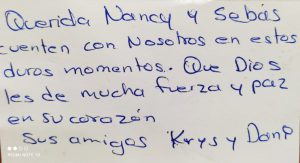 Querida Nancy y Sebás
cuenten con Nosotros en estos
duros momentos. Que Dios
les de mucha fuerza y paz
en su corazón
Sus amigos Krys y Dani
REDMI NOTE 10